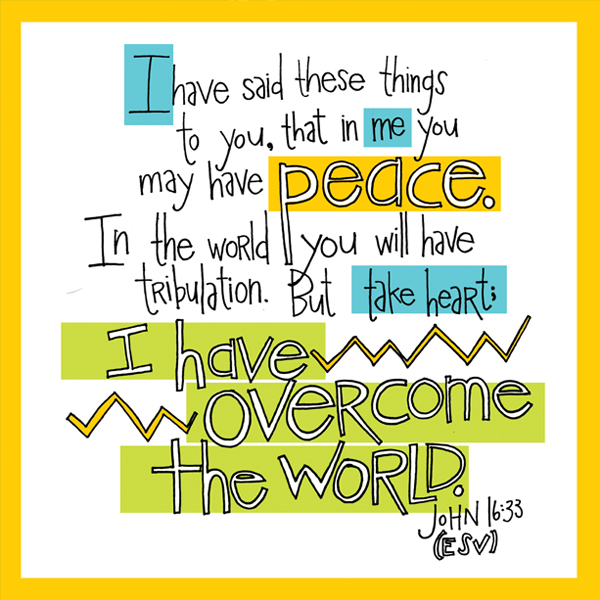 I have said these things
to you, that in me you
may have peace.
In the world you will have
tribulation. But take heart;
I have
OVERCOME
the WORLD.
JOHN 16:33
(ESV)